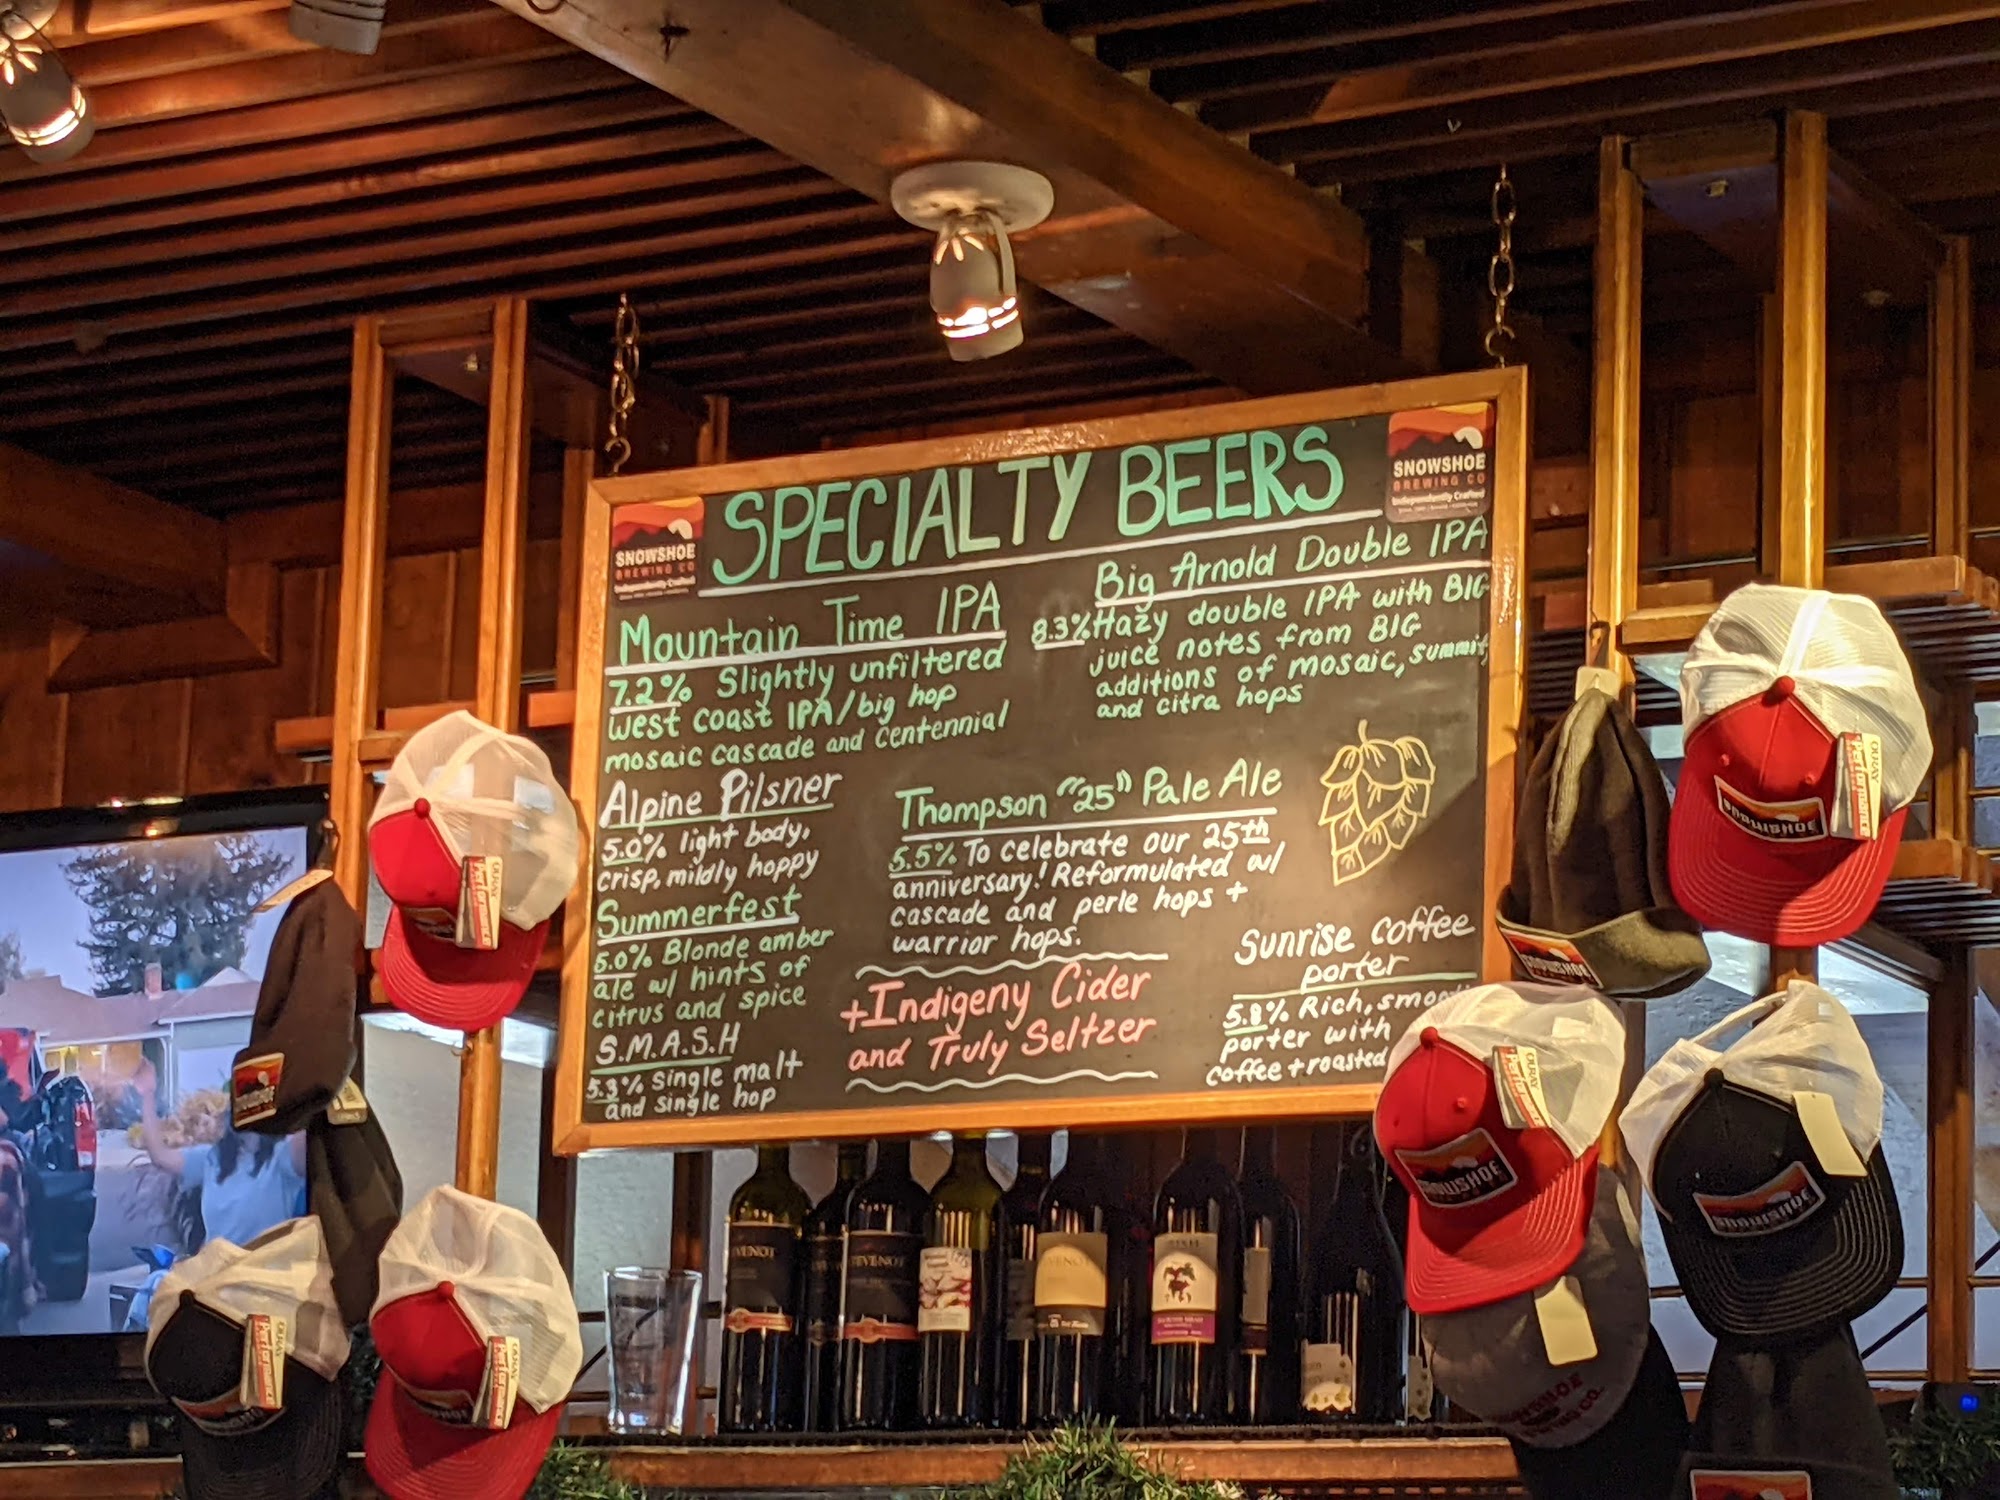 SPECIALTY BEERS
SNOWSHOE
BREWING CO
Independently Crafted
SNOWSHOE
BREWING CO
Independently Crafted
Mountain Time IPA
7.2% Slightly unfiltered
west coast IPA/big hop
mosaic cascade and centennial
Alpine Pilsner
5.0% light body,
crisp, mildly hoppy
Summerfest
5.0% Blonde amber
ale w/ hints of
citrus and spice
S.M.A.S.H
5.3% single malt
and single hop
Big Arnold Double IPA
8.3% Hazy double IPA with BIG
juice notes from BIG
additions of mosaic, summit,
and citra hops
Thompson "25" Pale Ale
5.5% To celebrate our 25th
anniversary! Reformulated w/
cascade and perle hops +
warrior hops.
+Indigeny Cider
and Truly Seltzer
Sunrise coffee
porter
5.8% Rich, smoo
porter with
coffee + roasted
SNOWSHOE
OURAY
Performance
SNOWSHOE
SNOWSHOE
OURAY
Performance
SNOWSHOE
SNOWSHOE
OURAY
Performance
SNOWSHOE
OURAY
Performance
OURAY
Performance
EVENOT
EVENOT
EVENOT